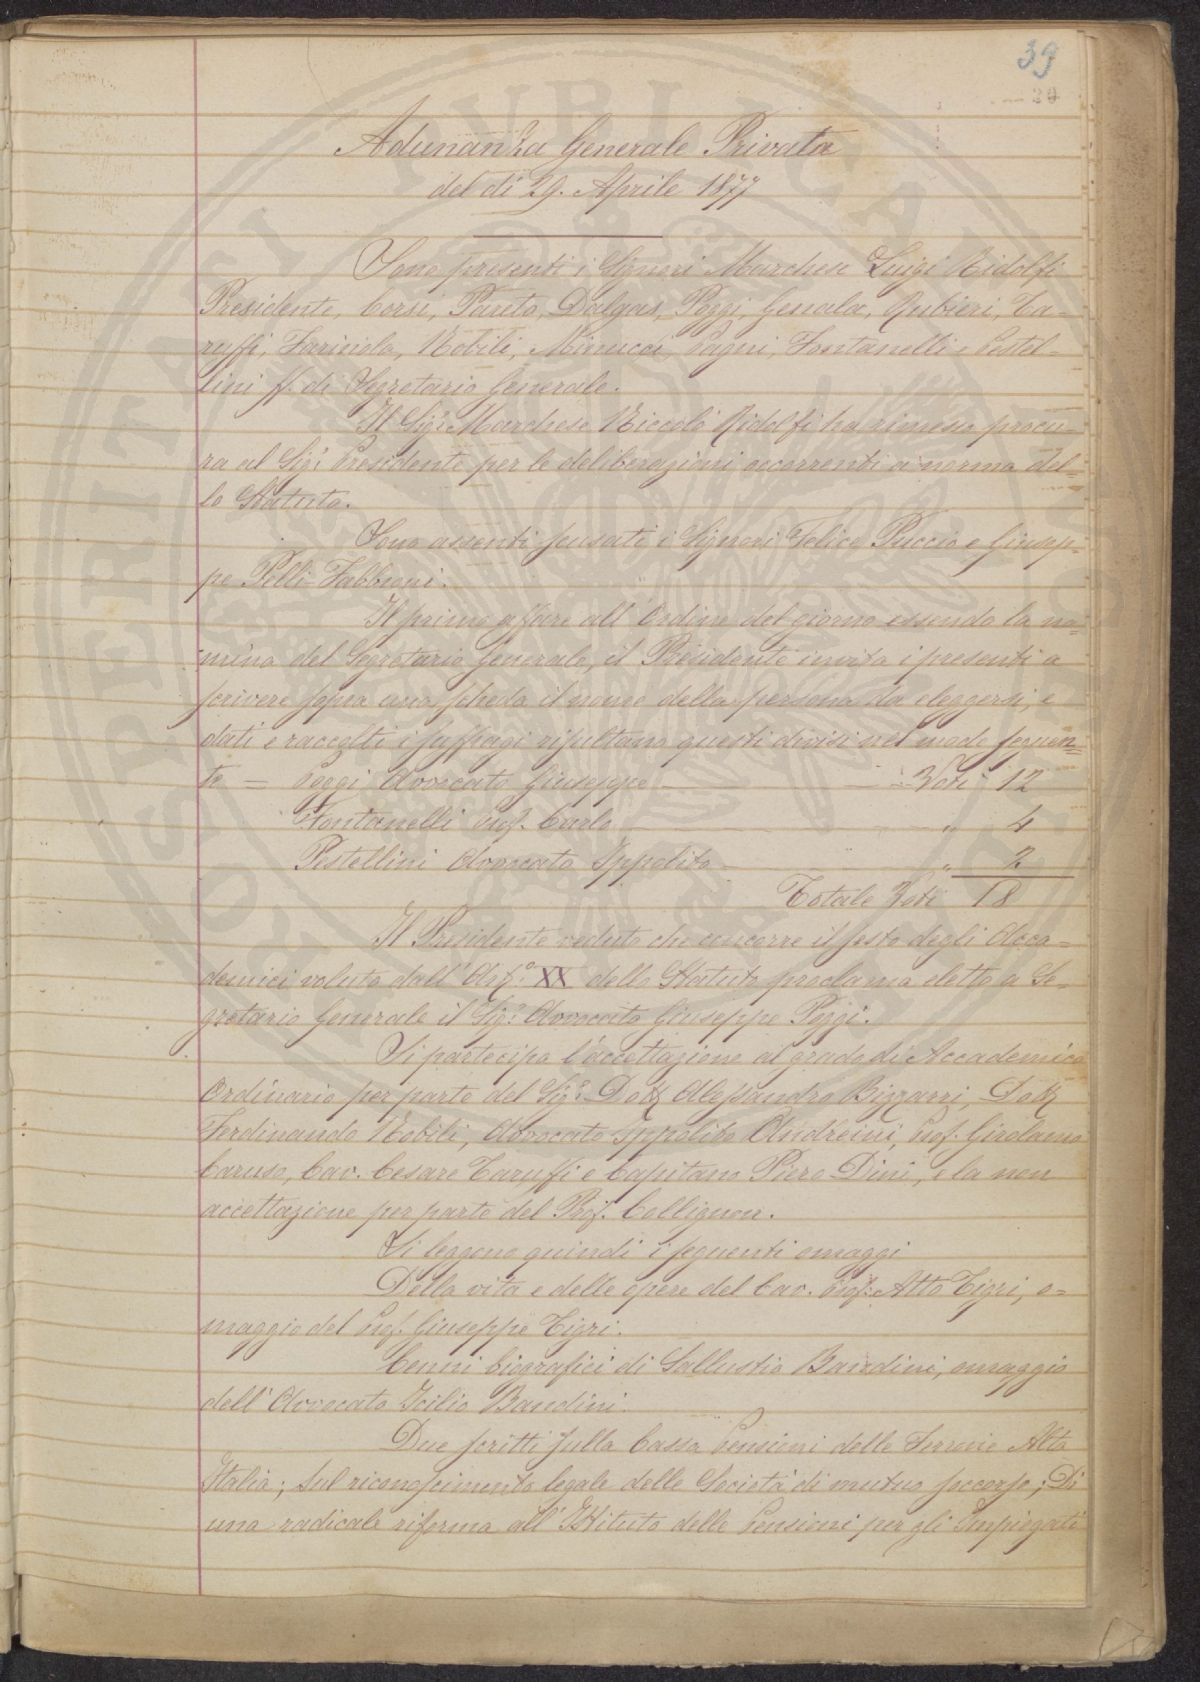 39
Adunanza Generale Privata
del dì 29. Aprile 1877
Sono presenti i Signori Marchese Luigi Ridolfi
Presidente, Corsi, Pareto, Dalgas, Poggi, Genala, Rubieri, Ta-
ruffi, Farinola, Nobili, Minucci, Pagni, Fontanelli e Pestel-
lini ff. di Segretario Generale.
Il Sigr. Marchese Niccolò Ridolfi ha rimesso procu-
ra al Sigr. Presidente per le deliberazioni occorrenti a norma del-
lo Statuto.
Sono assenti scusati i Signori Felice Puccio e Giusep-
pe Pelli-Fabbroni.
Il primo affare all'Ordine del giorno essendo la no-
mina del Segretario Generale, il Presidente invita i presenti a
scrivere sopra una scheda il nome della persona da eleggersi, e
dati e raccolti i suffragi risultano questi divisi nel modo seguen-
te = Poggi Avvocato Giuseppe Voti 12
Fontanelli Prof. Carlo " 4
Pestellini Avvocato Ippolito " 2
Totale Voti 18
Il Presidente veduto che concorre il sesto degli Acca-
demici voluto dall'Art.o XX dello Statuto proclama eletto a Se-
gretario Generale il Sigr. Avvocato Giuseppe Poggi.
Si partecipa l'accettazione al grado di Accademico
Ordinario per parte del Sigr. Dott. Alessandro Bizzarri, Dott.
Ferdinando Nobili, Avvocato Ippolito Andreini, Prof. Girolamo
Caruso, Cav. Cesare Taruffi e Capitano Piero Dini, e la non
accettazione per parte del Prof. Collignon.
Si leggono quindi i seguenti omaggi
Della vita e delle opere del Cav. Prof. Atto Tigri, o-
maggio del Prof. Giuseppe Tigri.
Cenni biografici di Sallustio Bandini, omaggio
dell'Avvocato Icilio Bandini.
Due scritti sulla Cassa Pensioni delle Ferrovie Alta
Italia; Sul riconoscimento legale delle Società di mutuo soccorso; Di
una radicale riforma all'Istituto delle Pensioni per gli Impiegati